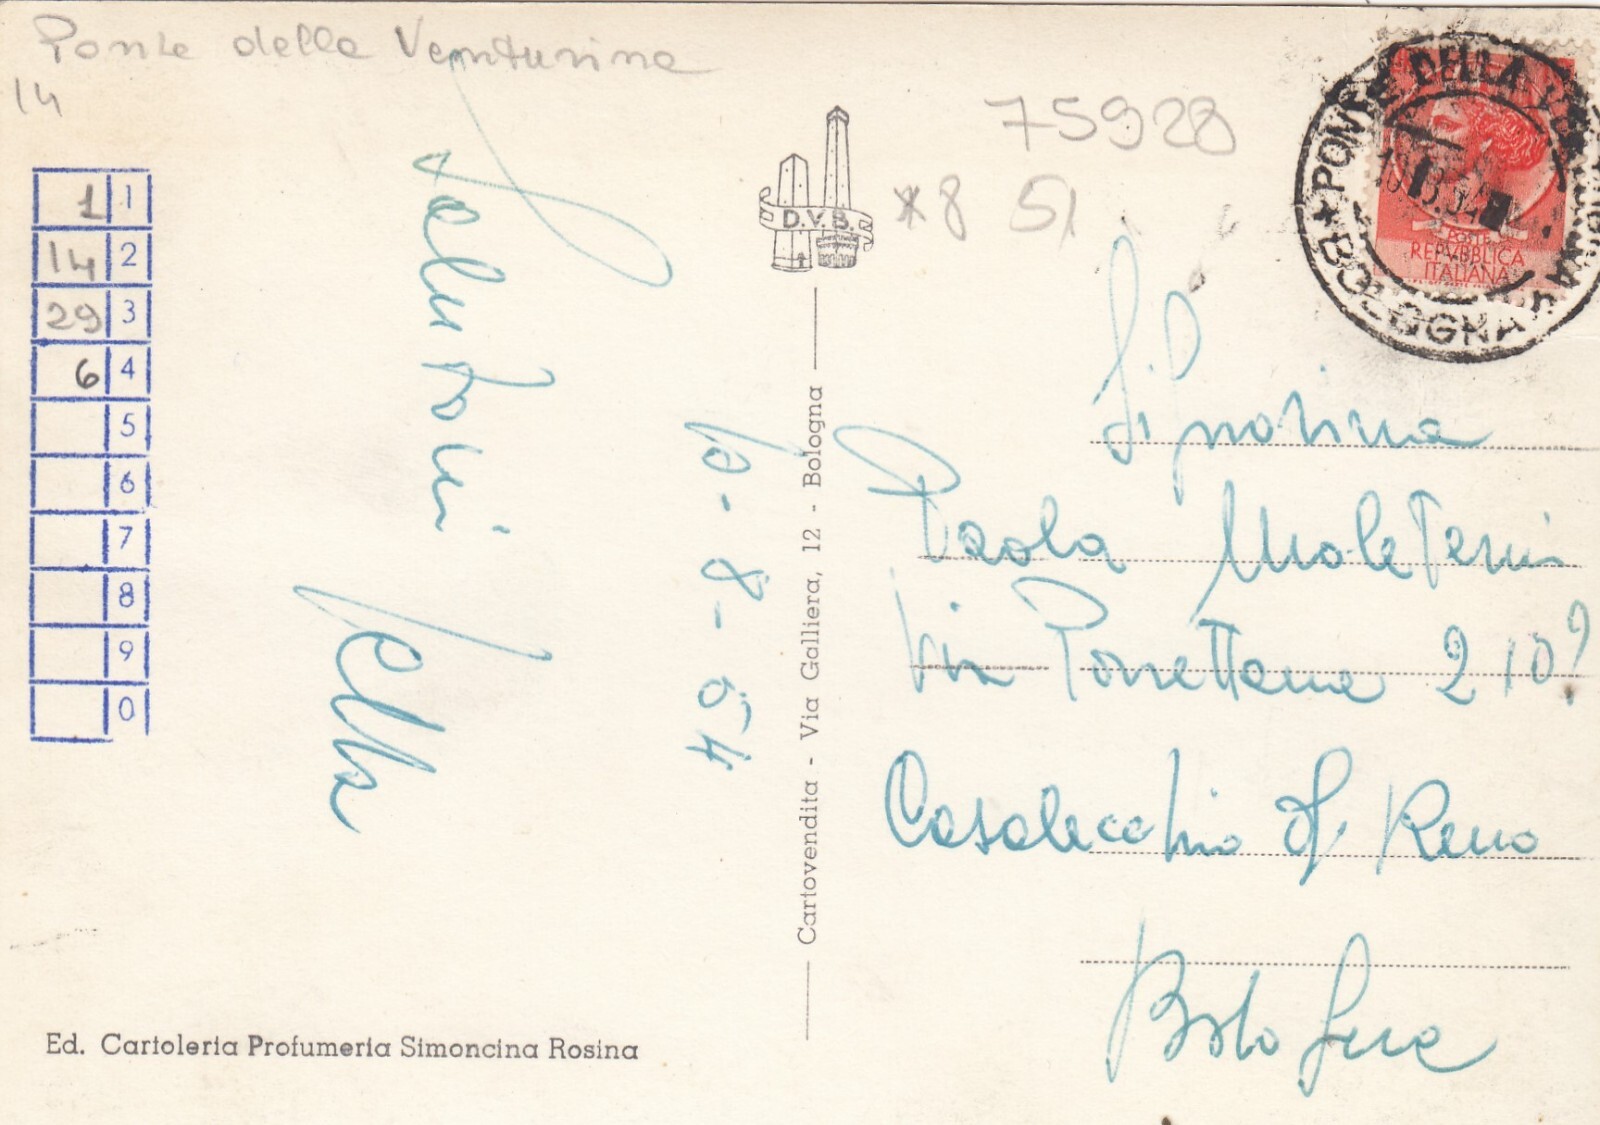 Ponte della Venturina
14
75928
*8 51
PONTE DELLA VENTURINA
* BOLOGNA *
POSTE
REPVBBLICA
ITALIANA
D.V.B.
1 1
14 2
29 3
6 4
5
6
7
8
9
0
Saluti
10-8-54
Cartovendita - Via Galliera, 12 - Bologna
Signorina
Paola
Via Porrettana 210?
Casalecchio di Reno
Bologna
Ed. Cartoleria Profumeria Simoncina Rosina